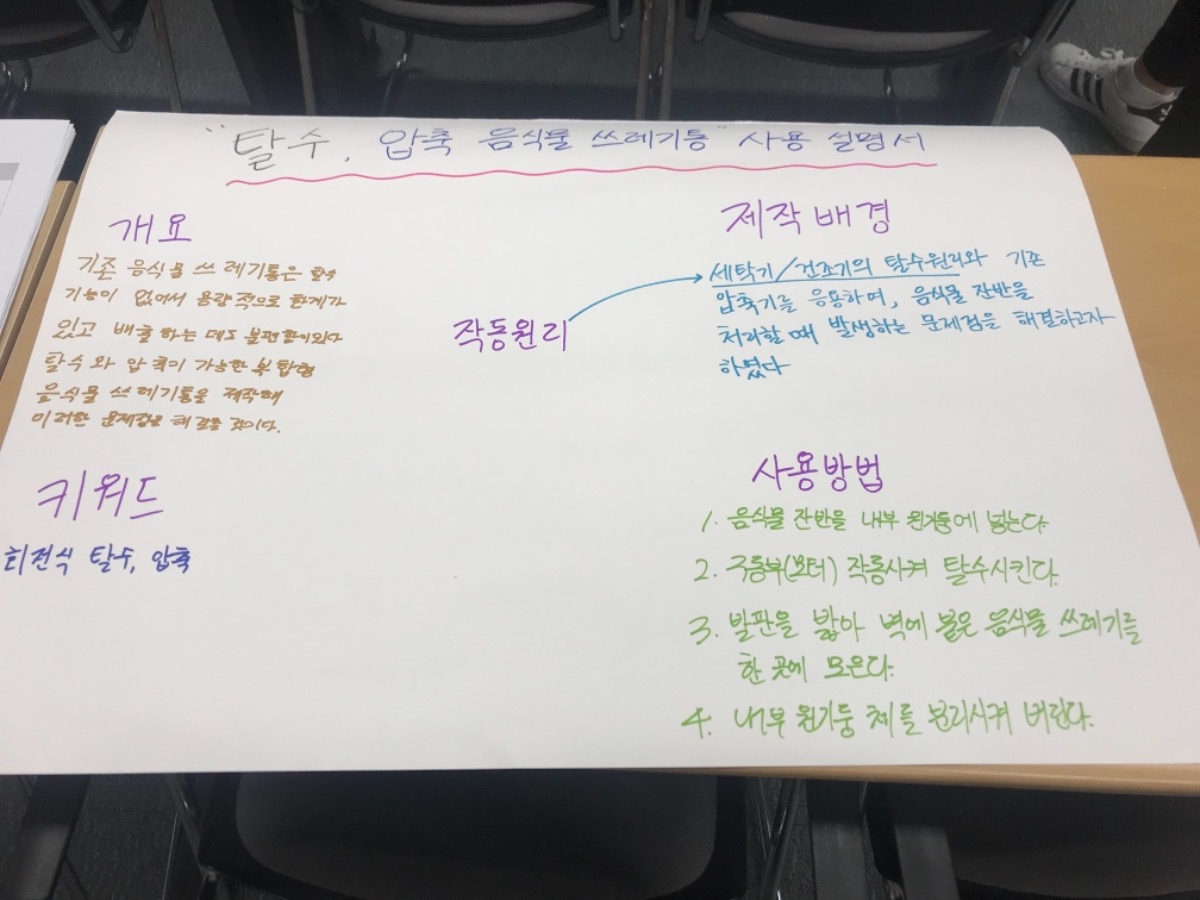 "탈수, 압축 음식물 쓰레기통" 사용 설명서
개요
기존 음식물 쓰레기통은 탈수
기능이 없어서 용량적으로 한계가
있고 배출하는데도 불편함이있다
탈수와 압축이 가능한 복합형
음식물 쓰레기통을 제작해
이러한 문제점을 해결할 것이다.
키워드
회전식 탈수, 압축
작동원리
제작배경
세탁기/건조기의 탈수원리와 기존
압축기를 응용하여, 음식물 잔반을
처리할때 발생하는 문제점을 해결하고자
하였다
사용방법
1. 음식물 잔반을 내부 원기둥에 넣는다
2. 구동부(모터) 작동시켜 탈수시킨다.
3. 발판을 밟아 벽에 붙은 음식물 쓰레기를
한 곳에 모은다.
4. 내부 원기둥 체를 분리시켜 버린다.